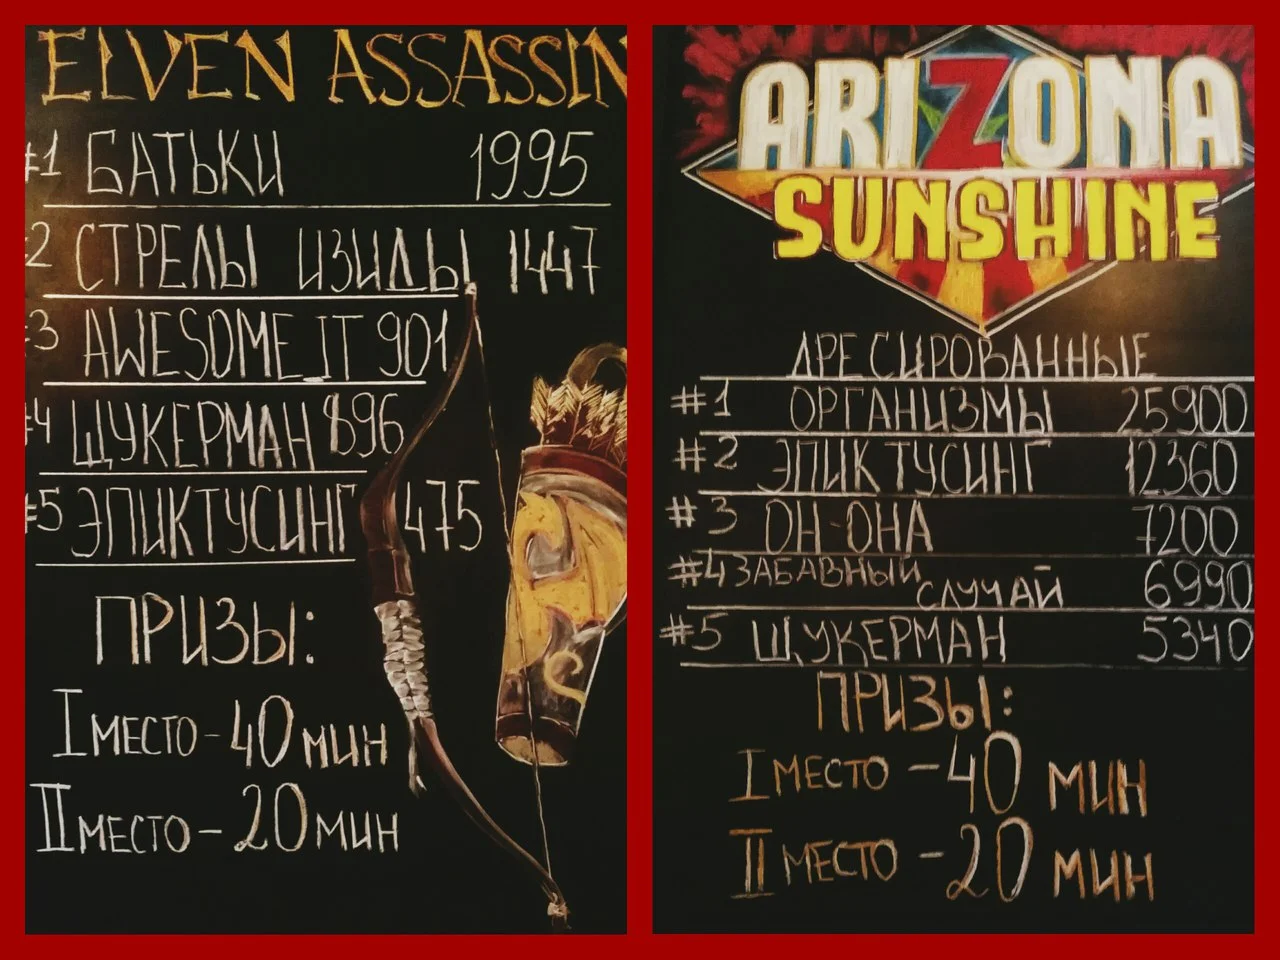 ELVEN ASSASSIN
#1 БАТЬКИ 1995
#2 СТРЕЛЫ ИЗИДЫ 1447
#3 AWESOME_IT 901
#4 ЩУКЕРМАН 896
#5 ЭПИКТУСИНГ 475
ПРИЗЫ:
I МЕСТО - 40 МИН
II МЕСТО - 20 МИН
ARIZONA
SUNSHINE
ДРЕСИРОВАННЫЕ
#1 ОРГАНИЗМЫ 25900
#2 ЭПИКТУСИНГ 12360
#3 ОН-ОНА 7200
#4 ЗАБАВНЫЙ СЛУЧАЙ 6990
#5 ЩУКЕРМАН 5340
ПРИЗЫ:
I МЕСТО - 40 МИН
II МЕСТО - 20 МИН